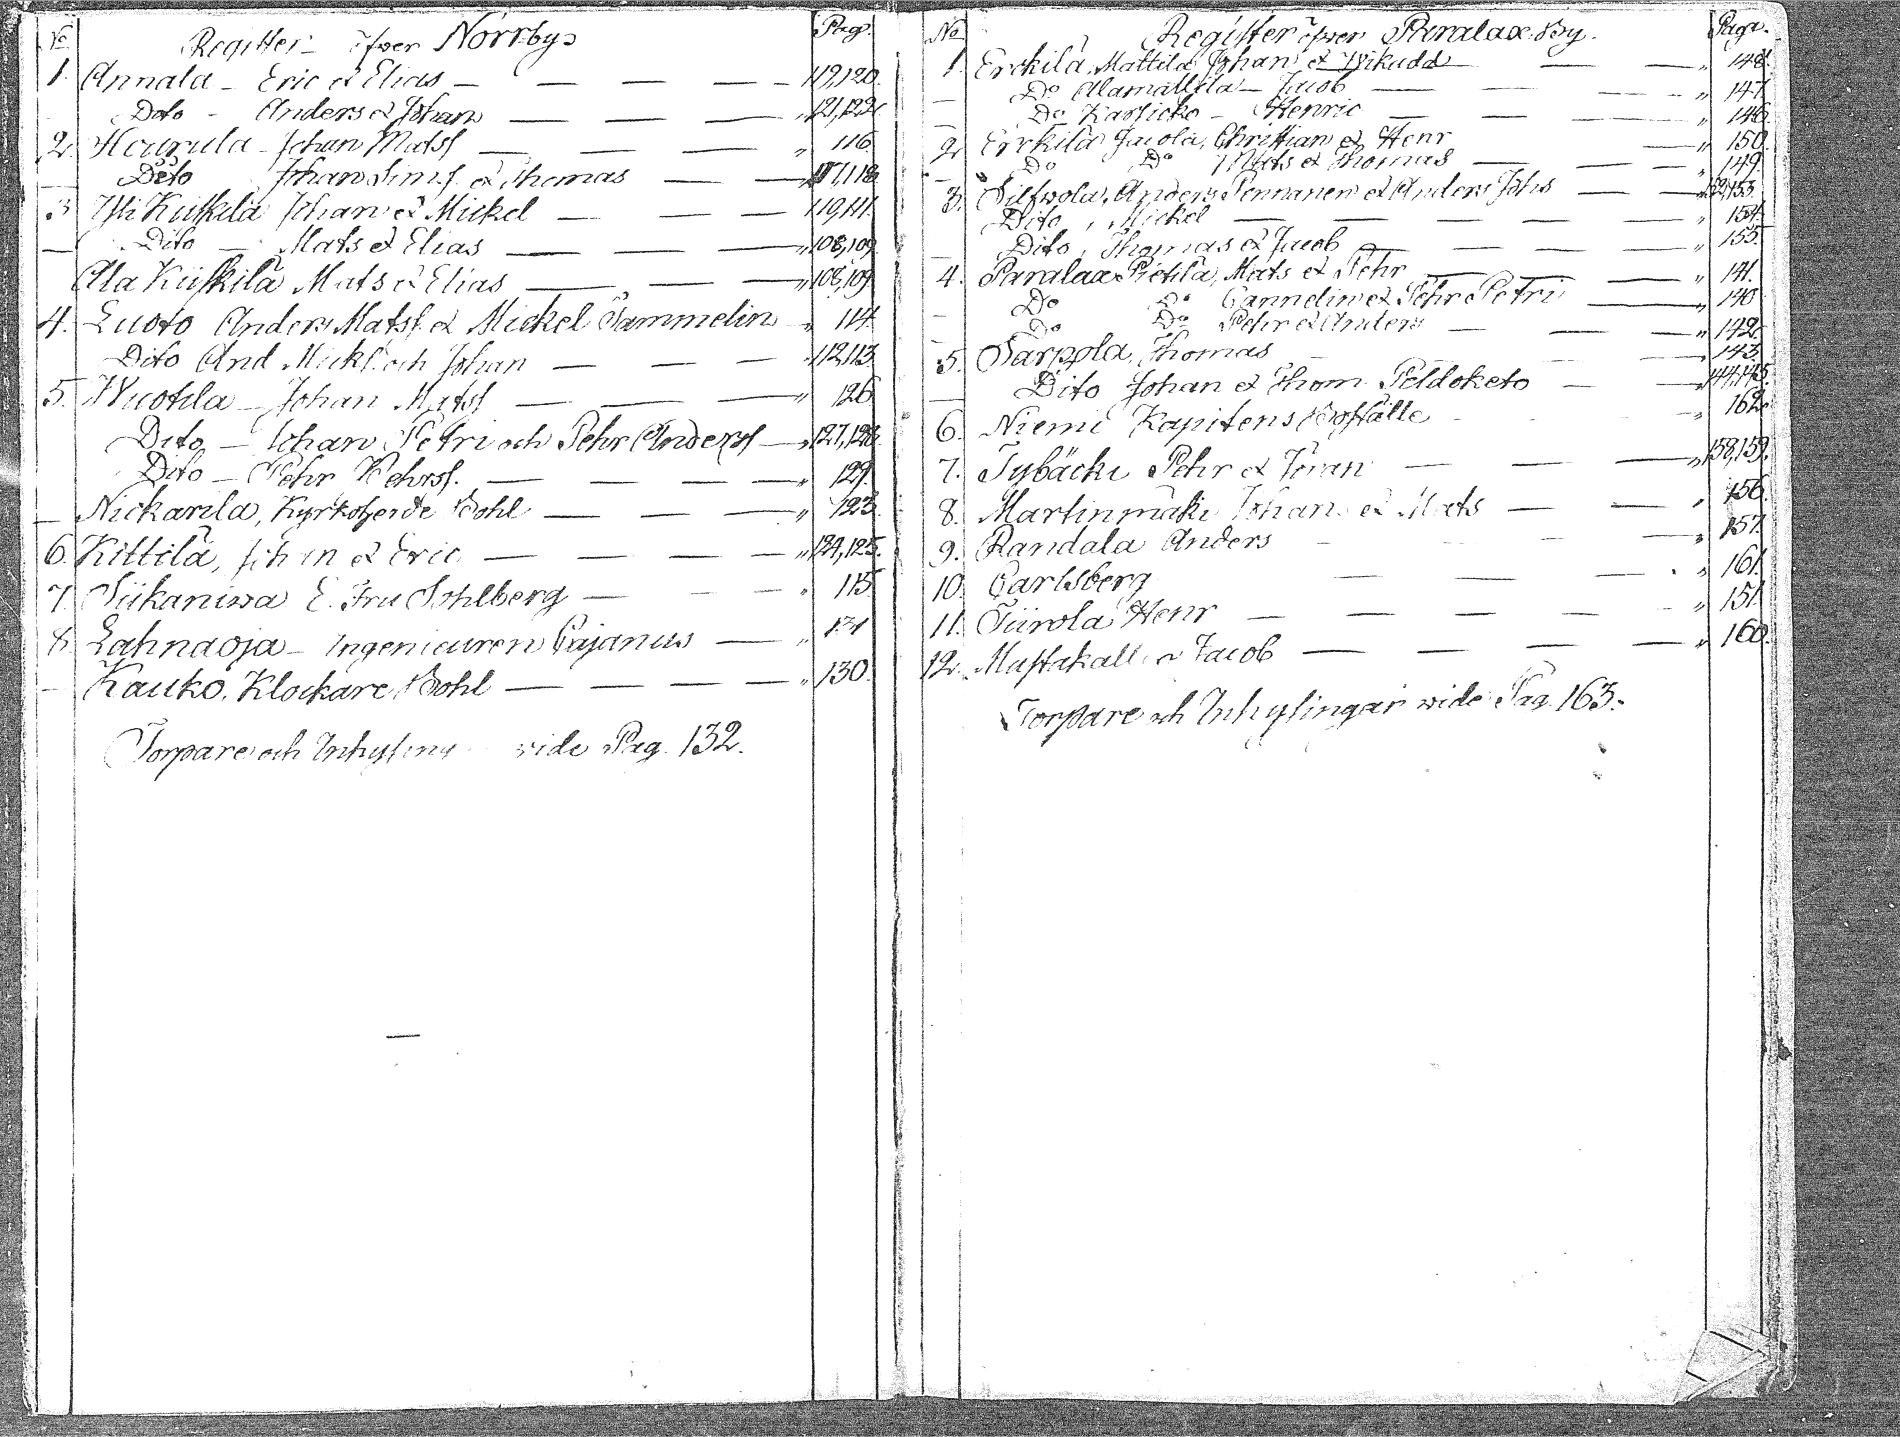 No Register öfver Norrby Pag.
1. Annala - Eric et Elias 119,120.
Dito - Anders et Johan 121,122.
2. Heurula - Johan Matss " 116.
Dito Johan Simss. et Thomas " 117,118.
3 Yli Kuskila Johan et Mickel 110,111.
Dito - Mats et Elias " 108,109.
Ala Kuskila Mats et Elias " 108,109.
4. Luoto Anders Matss. et Mickel Sammelin " 114.
Dito And. Mickl. och Johan " 112,113.
5. Wuotila - Johan Matss " 126
Dito - Johan Petri och Pehr Anderss " 127,128.
Dito - Pehr Pehrss. " 129.
Nickarila, Kyrkoherde Bohl " 123.
6. Kittilä, Johan et Eric " 124,125.
7. Siikaniwa E. Fru Sohlberg " 115
8. Lahnaoja - Ingenieuren Cajanus " 131
Kauko, Klockare Bohl " 130.
Torpare och Inhysing vide Pag. 132.
No Register öfver Paralax By. Pag.
1. Erckilä Mattila, Johan et 148.
Do Alamattila - Jacob " 147.
Do Karsicko - Henric " 146.
2. Erckilä Juola, Christian et Henr 150.
Do Do Mats et Thomas " 149.
3. Silfwola, Anders Pennanen et Anders Johs 152,153
Dito, Mickel " 154.
Dito, Thomas et Jacob " 155.
4. Paralax Pietilä, Mats et Pehr " 141.
Do Do et Pehr Petri " 140
Do Do Pehr et Anders " 142.
5. Sarpola, Thomas " 143.
Dito Johan et Thom. Peldoketo " 144,145.
6. Niemi Kapitens Boställe " 162.
7. Tybäcki Pehr et Göran " 158,159.
8. Martinmäki Johan et Mats " 156.
9. Randala Anders " 157.
10. Carlsberg " 161.
11. Tiirola Henr " 151.
12. Mustakallio Jacob " 160.
Torpare och Inhysingar vide Pag. 163.